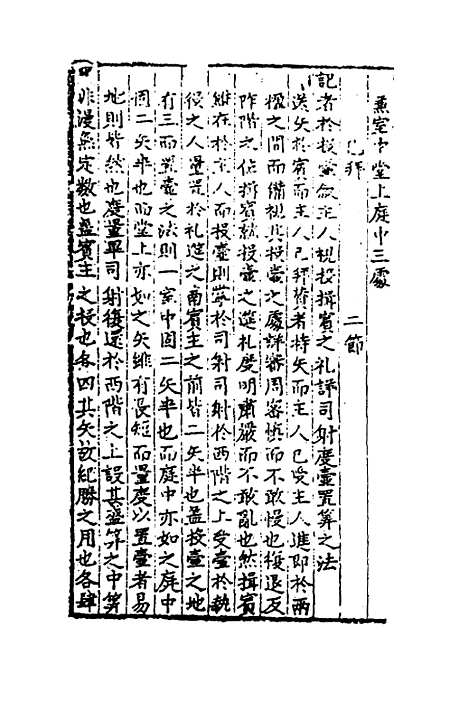 兼室中堂上庭中三處
已拜　　二節
記者於投壺叙主人視投揖賓之礼詳司射度壺置算之法
送矢於賓而主人已拜贊者持矢而主人已受主人進即於兩
楹之間而備視其投壺之處詳審周密慎而不敢慢也復退反
阼階之位揖賓就投壺之筵礼度明肅嚴而不敢亂也然揖賓
雖在於主人而投壺則掌於司射司射於西階之上受壺於執
役之人量置於礼筵之南賓主之前皆二矢半也盖投壺之地
有三而置壺之法則一室中固二矢半也而庭中亦如之庭中
固二矢半也而堂上亦如之矢雖有長短而量度以置壺者易
地則皆然也度量畢司射復還於西階之上設其盛算之中算
四非漫無定数也盖賓主之投也各四其矢故紀勝之用也各肆